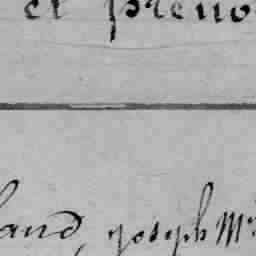 et préno
land, joseph M